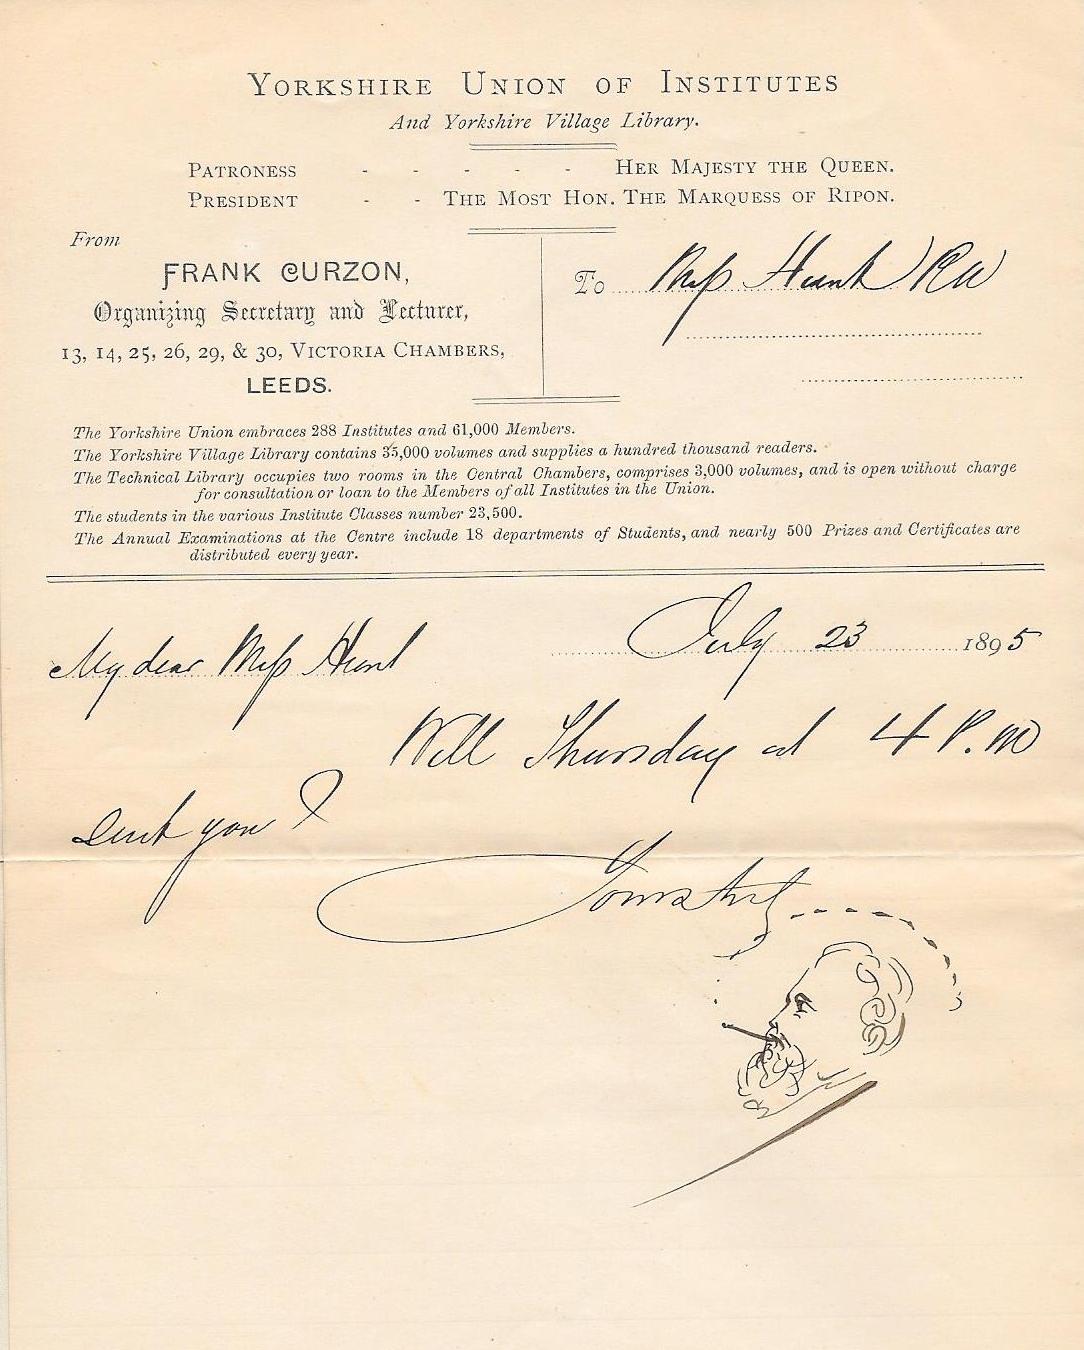 YORKSHIRE UNION OF INSTITUTES
And Yorkshire Village Library.
PATRONESS - - - - HER MAJESTY THE QUEEN.
PRESIDENT - - THE MOST HON. THE MARQUESS OF RIPON.
From
FRANK CURZON,
Organizing Secretary and Lecturer,
13, 14, 25, 26, 29, & 30, VICTORIA CHAMBERS,
LEEDS.
To Miss Hunt
The Yorkshire Union embraces 288 Institutes and 61,000 Members.
The Yorkshire Village Library contains 35,000 volumes and supplies a hundred thousand readers.
The Technical Library occupies two rooms in the Central Chambers, comprises 3,000 volumes, and is open without charge
for consultation or loan to the Members of all Institutes in the Union.
The students in the various Institute Classes number 23,500.
The Annual Examinations at the Centre include 18 departments of Students, and nearly 500 Prizes and Certificates are
distributed every year.
July 23 1895
My dear Miss Hunt
Will Thursday at 4 P.M
suit you?
Yours truly